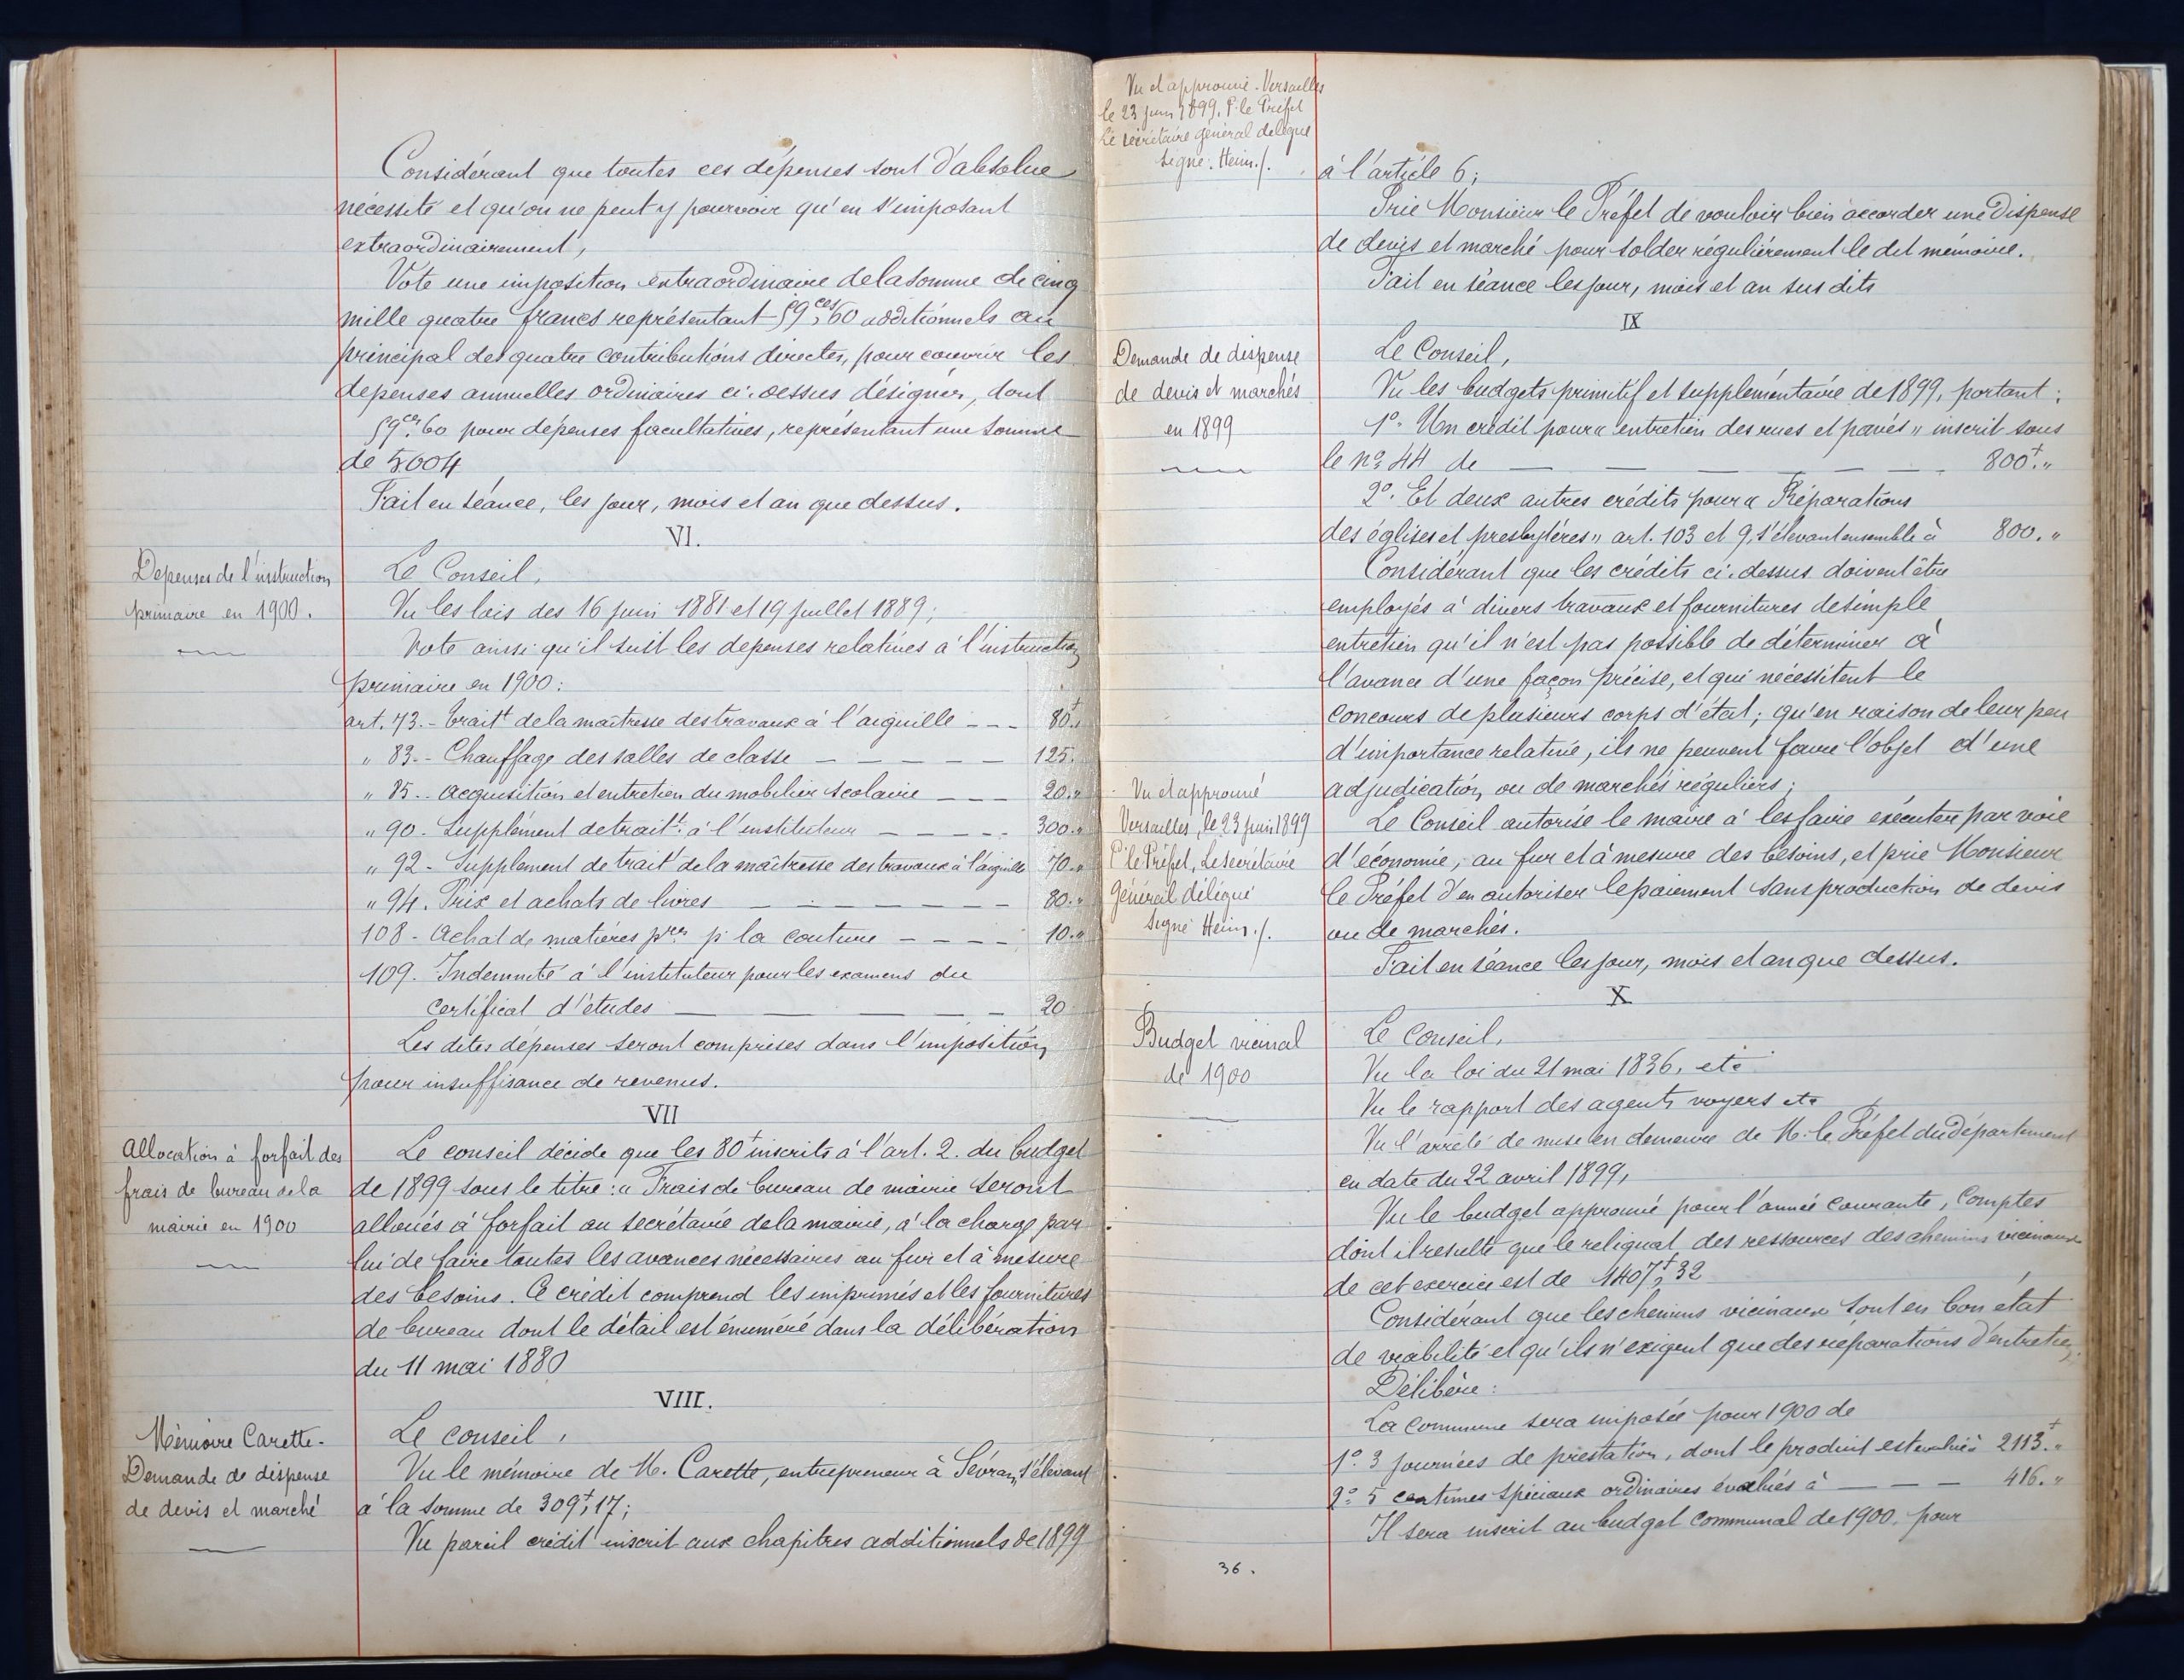 Considérant que toutes ces dépenses sont d'absolue
nécessité et qu'on ne peut y pourvoir qu'en s'imposant
extraordinairement,
Vote une imposition extraordinaire de la somme de cinq
mille quatre francs représentant 59ces,60 additionnels au
principal des quatre contributions directes, pour couvrir les
dépenses annuelles ordinaires ci-dessus désignées, dont
59ces,60 pour dépenses facultatives, représentant une somme
de 5004
Fait en séance, les jour, mois et an que dessus.
VI.
Dépenses de l'instruction
primaire en 1900.
Le Conseil,
Vu les lois des 16 juin 1881 et 19 juillet 1889;
Vote ainsi qu'il suit les dépenses relatives à l'instruction
primaire en 1900:
art. 73. - trait^t de la maîtresse des travaux à l'aiguille - - - 80f."
" 83. - Chauffage des salles de classe - - - - - 125.
" 85. - acquisition et entretien du mobilier scolaire - - - 20."
" 90 - Supplément de trait^t à l'instituteur - - - - 300."
" 92 - Supplément de trait^t de la maîtresse des travaux à l'aiguille 70."
" 94. Prix et achats de livres - - - - - - 80."
108 - Achat de matières p^res p^r la couture - - - - 10."
109. Indemnité à l'instituteur pour les examens du
certificat d'études - - - - - 20
Les dites dépenses seront comprises dans l'imposition
pour insuffisance de revenus.
VII
Allocation à forfait des
frais de bureau de la
mairie en 1900
Le conseil décide que les 80f inscrits à l'art. 2. du budget
de 1899 sous le titre: « Frais de bureau de mairie seront
alloués à forfait au secrétaire de la mairie, à la charge par
lui de faire toutes les avances nécessaires au fur et à mesure
des besoins. Ce crédit comprend les imprimés et les fournitures
de bureau dont le détail est énuméré dans la délibération
du 11 mai 1880
VIII.
Mémoire Carette.
Demande de dispense
de devis et marché
Le conseil,
Vu le mémoire de M. Carette, entrepreneur à Sévran, s'élevant
à la somme de 309f,17;
Vu pareil crédit inscrit aux chapitres additionnels de 1899
Vu et approuvé - Versailles
le 23 juin 1899. P. le Préfet
Le secrétaire général délégué
Signé: Heim./.
à l'article 6;
Prie Monsieur le Préfet de vouloir bien accorder une dispense
de devis et marché pour solder régulièrement le dit mémoire.
Fait en séance les jour, mois et an sus dits
IX
Demande de dispense
de devis et marchés
en 1899
Le Conseil,
Vu les budgets primitif et supplémentaire de 1899, portant:
1°. Un crédit pour « entretien des rues et pavés » inscrit sous
le n° 44 de - - - - - - 800f."
2°. Et deux autres crédits pour « Réparations
des églises et presbytères » art. 103 et 9, s'élevant ensemble à 800."
Considérant que les crédits ci-dessus doivent être
employés à divers travaux et fournitures de simple
entretien qu'il n'est pas possible de déterminer à
l'avance d'une façon précise, et qui nécessitent le
concours de plusieurs corps d'état; qu'en raison de leur peu
d'importance relative, ils ne peuvent faire l'objet d'une
adjudication, ou de marchés réguliers;
Vu et approuvé
Versailles, le 23 juin 1899
P. le Préfet, Le secrétaire
Général délégué
Signé Heim./.
Le Conseil autorise le maire à les faire exécuter par voie
d'économie, au fur et à mesure des besoins, et prie Monsieur
le Préfet d'en autoriser le paiement sans production de devis
ou de marchés.
Fait en séance les jour, mois et an que dessus.
X
Budget vicinal
de 1900
Le Conseil,
Vu la loi du 21 mai 1836, etc
Vu le rapport des agents voyers etc
Vu l'arrêté de mise en demeure de M. le Préfet du département
en date du 22 avril 1899,
Vu le budget approuvé pour l'année courante, Comptes
dont il résulte que le reliquat des ressources des chemins vicinaux
de cet exercice est de 1407f,32
Considérant que les chemins vicinaux sont en bon état
de viabilité et qu'ils n'exigent que des réparations d'entretien,
Délibère:
La commune sera imposée pour 1900 de
1°. 3 journées de prestation, dont le produit est évalué à 2113f."
2°. 5 centimes spéciaux ordinaires évalués à - - - 416."
Il sera inscrit au budget communal de 1900, pour
36.